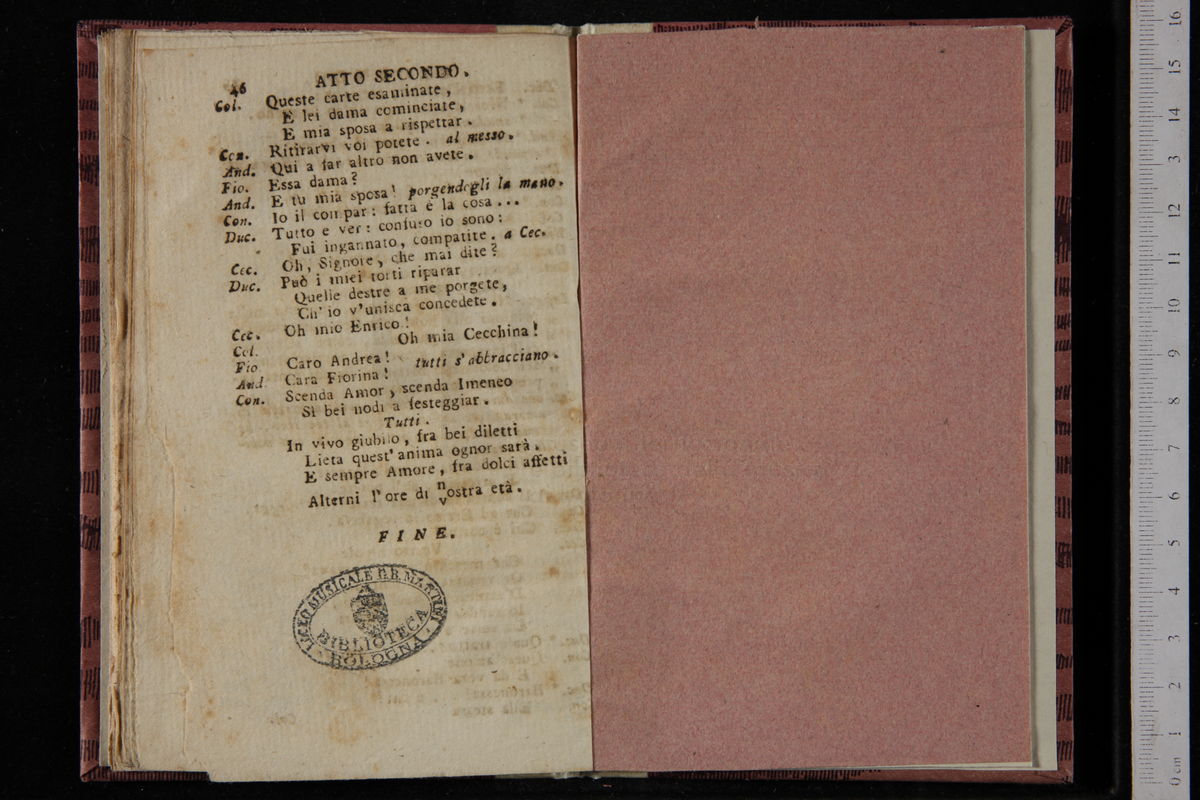 46
ATTO SECONDO.
Col. Queste carte esaminate,
E lei dama cominciate,
E mia sposa a rispettar.
Con. Ritirarvi voi potete. al messo.
And. Qui a far altro non avete.
Fio. Essa dama?
And. E tu mia sposa! porgendogli la mano.
Con. Io il compar: fatta è la cosa...
Duc. Tutto e ver: confuso io sono:
Fui ingannato, compatite. a Cec.
Cec. Oh, Signore, che mai dite?
Duc. Può i miei torti riparar
Quelle destre a me porgete,
Ch' io v'unisca concedete.
Cec. Oh mio Enrico!
Col. Oh mia Cecchina!
Fio Caro Andrea! tutti s'abbracciano.
And. Cara Fiorina!
Con. Scenda Amor, scenda Imeneo
Sì bei nodi a festeggiar.
Tutti.
In vivo giubilo, fra bei diletti
Lieta quest' anima ognor sarà.
E sempre Amore, fra dolci affetti
Alterni l'ore di n/vostra età.
FINE.
LICEO MUSICALE G.B. MARTINI
BIBLIOTECA
BOLOGNA
0 cm 1 2 3 4 5 6 7 8 9 10 11 12 13 14 15 16